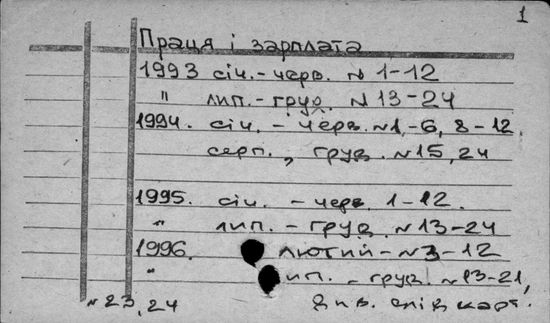 1
Праця і зарплата
1993 січ.-черв. N 1-12
" лип.-груд. N 13-24
1994. січ. - черв. N1,-6, 8-12
серп., груд. N15, 24
1995. січ. - черв. 1-12.
" лип. - груд. N13-24
1996. лютий-N3-12
" ип. - груд. N13-21,
N23,24 див. слід карт.